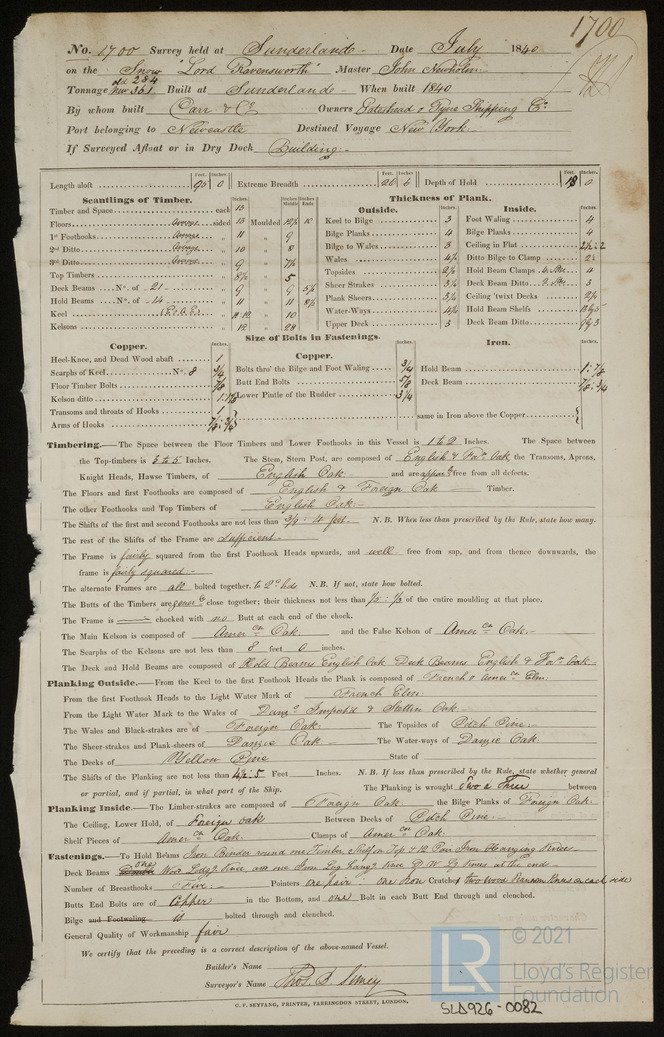 1700
No. 1700 Survey held at Sunderland Date July 1840
on the Snow "Lord Ravensworth" Master John Newholm
old 284
Tonnage New 361 Built at Sunderland When built 1840
By whom built Carr & Co Owners Gateshead & Tyne Shipping Co.
Port belonging to Newcastle Destined Voyage New York
If Surveyed Afloat or in Dry Dock Building
Feet. Inches. Feet. Inches. Feet. Inches.
Length aloft 90 0 Extreme Breadth 26 6 Depth of Hold 18 0
Scantlings of Timber. Thickness of Plank.
Inches. Inches Middle Inches Ends Outside. Inches. Inside. Inches.
Timber and Space each 13 Keel to Bilge 3 Foot Waling 4
Floors average sided 13 Moulded 12½ 10 Bilge Planks 4 Bilge Planks 4
1st Foothooks average " 11 " 9 Bilge to Wales 3 Ceiling in Flat 2½ : 2
2nd Ditto average " 10 " 8 Wales 4½ Ditto Bilge to Clamp 2½
3rd Ditto average " 9 " 7½ Topsides 2½ Hold Beam Clamps 4
Top Timbers " 8½ " 5 Sheer Strakes 3½ Deck Beam Ditto 3
Deck Beams No. of 21 " 9 " 9 5½ Plank Sheers 3½ Ceiling 'twixt Decks 2½
Hold Beams No. of 14 " 11 " 11 8½ Water-Ways 4½ Hold Beam Shelfs
Keel " 11-12 " 10 Upper Deck 3 Deck Beam Ditto
Kelsons " 12 " 28
Size of Bolts in Fastenings.
Copper. Inches. Copper. Inches. Iron. Inches.
Heel-Knee, and Dead Wood abaft 1
Scarphs of Keel No. 8 ¾ Bolts thro' the Bilge and Foot Waling ¾ Hold Beam 1 : ⅞
Floor Timber Bolts ⅞ Butt End Bolts ⅝ Deck Beam ⅞ : ¾
Kelson ditto Lower Pintle of the Rudder
Transoms and throats of Hooks 1
Arms of Hooks ⅞ : ¾ same in Iron above the Copper
Timbering.—The Space between the Floor Timbers and Lower Foothooks in this Vessel is 1 to 2 Inches. The Space between
the Top-timbers is 3 to 5 Inches. The Stem, Stern Post, are composed of English & Forn Oak, the Transoms, Aprons,
Knight Heads, Hawse Timbers, of English Oak and are apparly free from all defects.
The Floors and first Foothooks are composed of English & Foreign Oak Timber.
The other Foothooks and Top Timbers of English Oak
The Shifts of the first and second Foothooks are not less than 3½ : 4 feet. N.B. When less than prescribed by the Rule, state how many.
The rest of the Shifts of the Frame are Sufficient
The Frame is fairly squared from the first Foothook Heads upwards, and well free from sap, and from thence downwards, the
frame is fairly squared
The alternate Frames are all bolted together, to 2nd hds N.B. If not, state how bolted.
The Butts of the Timbers are generly close together; their thickness not less than ⅓ : ½ of the entire moulding at that place.
The Frame is chocked with no Butt at each end of the chock.
The Main Kelson is composed of Amercn Oak and the False Kelson of Amercn Oak
The Scarphs of the Kelsons are not less than 8 feet 0 inches.
The Deck and Hold Beams are composed of Hold Beams English Oak Deck Beams English & Forn Oak
Planking Outside.—From the Keel to the first Foothook Heads the Plank is composed of French & Amercn Elm
From the first Foothook Heads to the Light Water Mark of French Elm
From the Light Water Mark to the Wales of Oak
The Wales and Black-strakes are of Foreign Oak The Topsides of Pitch Pine
The Sheer-strakes and Plank-sheers of Danzic Oak The Water-ways of Danzic Oak
The Decks of Yellow Pine State of
The Shifts of the Planking are not less than 4½ : 5 Feet Inches. N.B. If less than prescribed by the Rule, state whether general
or partial, and if partial, in what part of the Ship. The Planking is wrought Two & Three between
Planking Inside.—The Limber-strakes are composed of Foreign Oak the Bilge Planks of Foreign Oak
The Ceiling, Lower Hold, of Foreign Oak Between Decks of Pitch Pine
Shelf Pieces of Amercn Oak Clamps of Amercn Oak
Fastenings.—To Hold Beams Iron Binder round one Timber, & 12 Pair Iron Hanging Knees
Deck Beams one Wood Lodg. Knee, and one Iron Hang. Knee at the ends
Number of Breasthooks Five Pointers one pair one Iron Crutches two wood Transom Knees on each side
Butts End Bolts are of Copper in the Bottom, and one Bolt in each Butt End through and clenched.
Bilge and Footwaling is bolted through and clenched.
General Quality of Workmanship fair
We certify that the preceding is a correct description of the above-named Vessel.
Builder's Name
Surveyor's Name Thos. B. Simey
C. F. SEYFANG, PRINTER, FARRINGDON STREET, LONDON.
LR © 2021
Lloyd's Register
Foundation
SLD926-0082